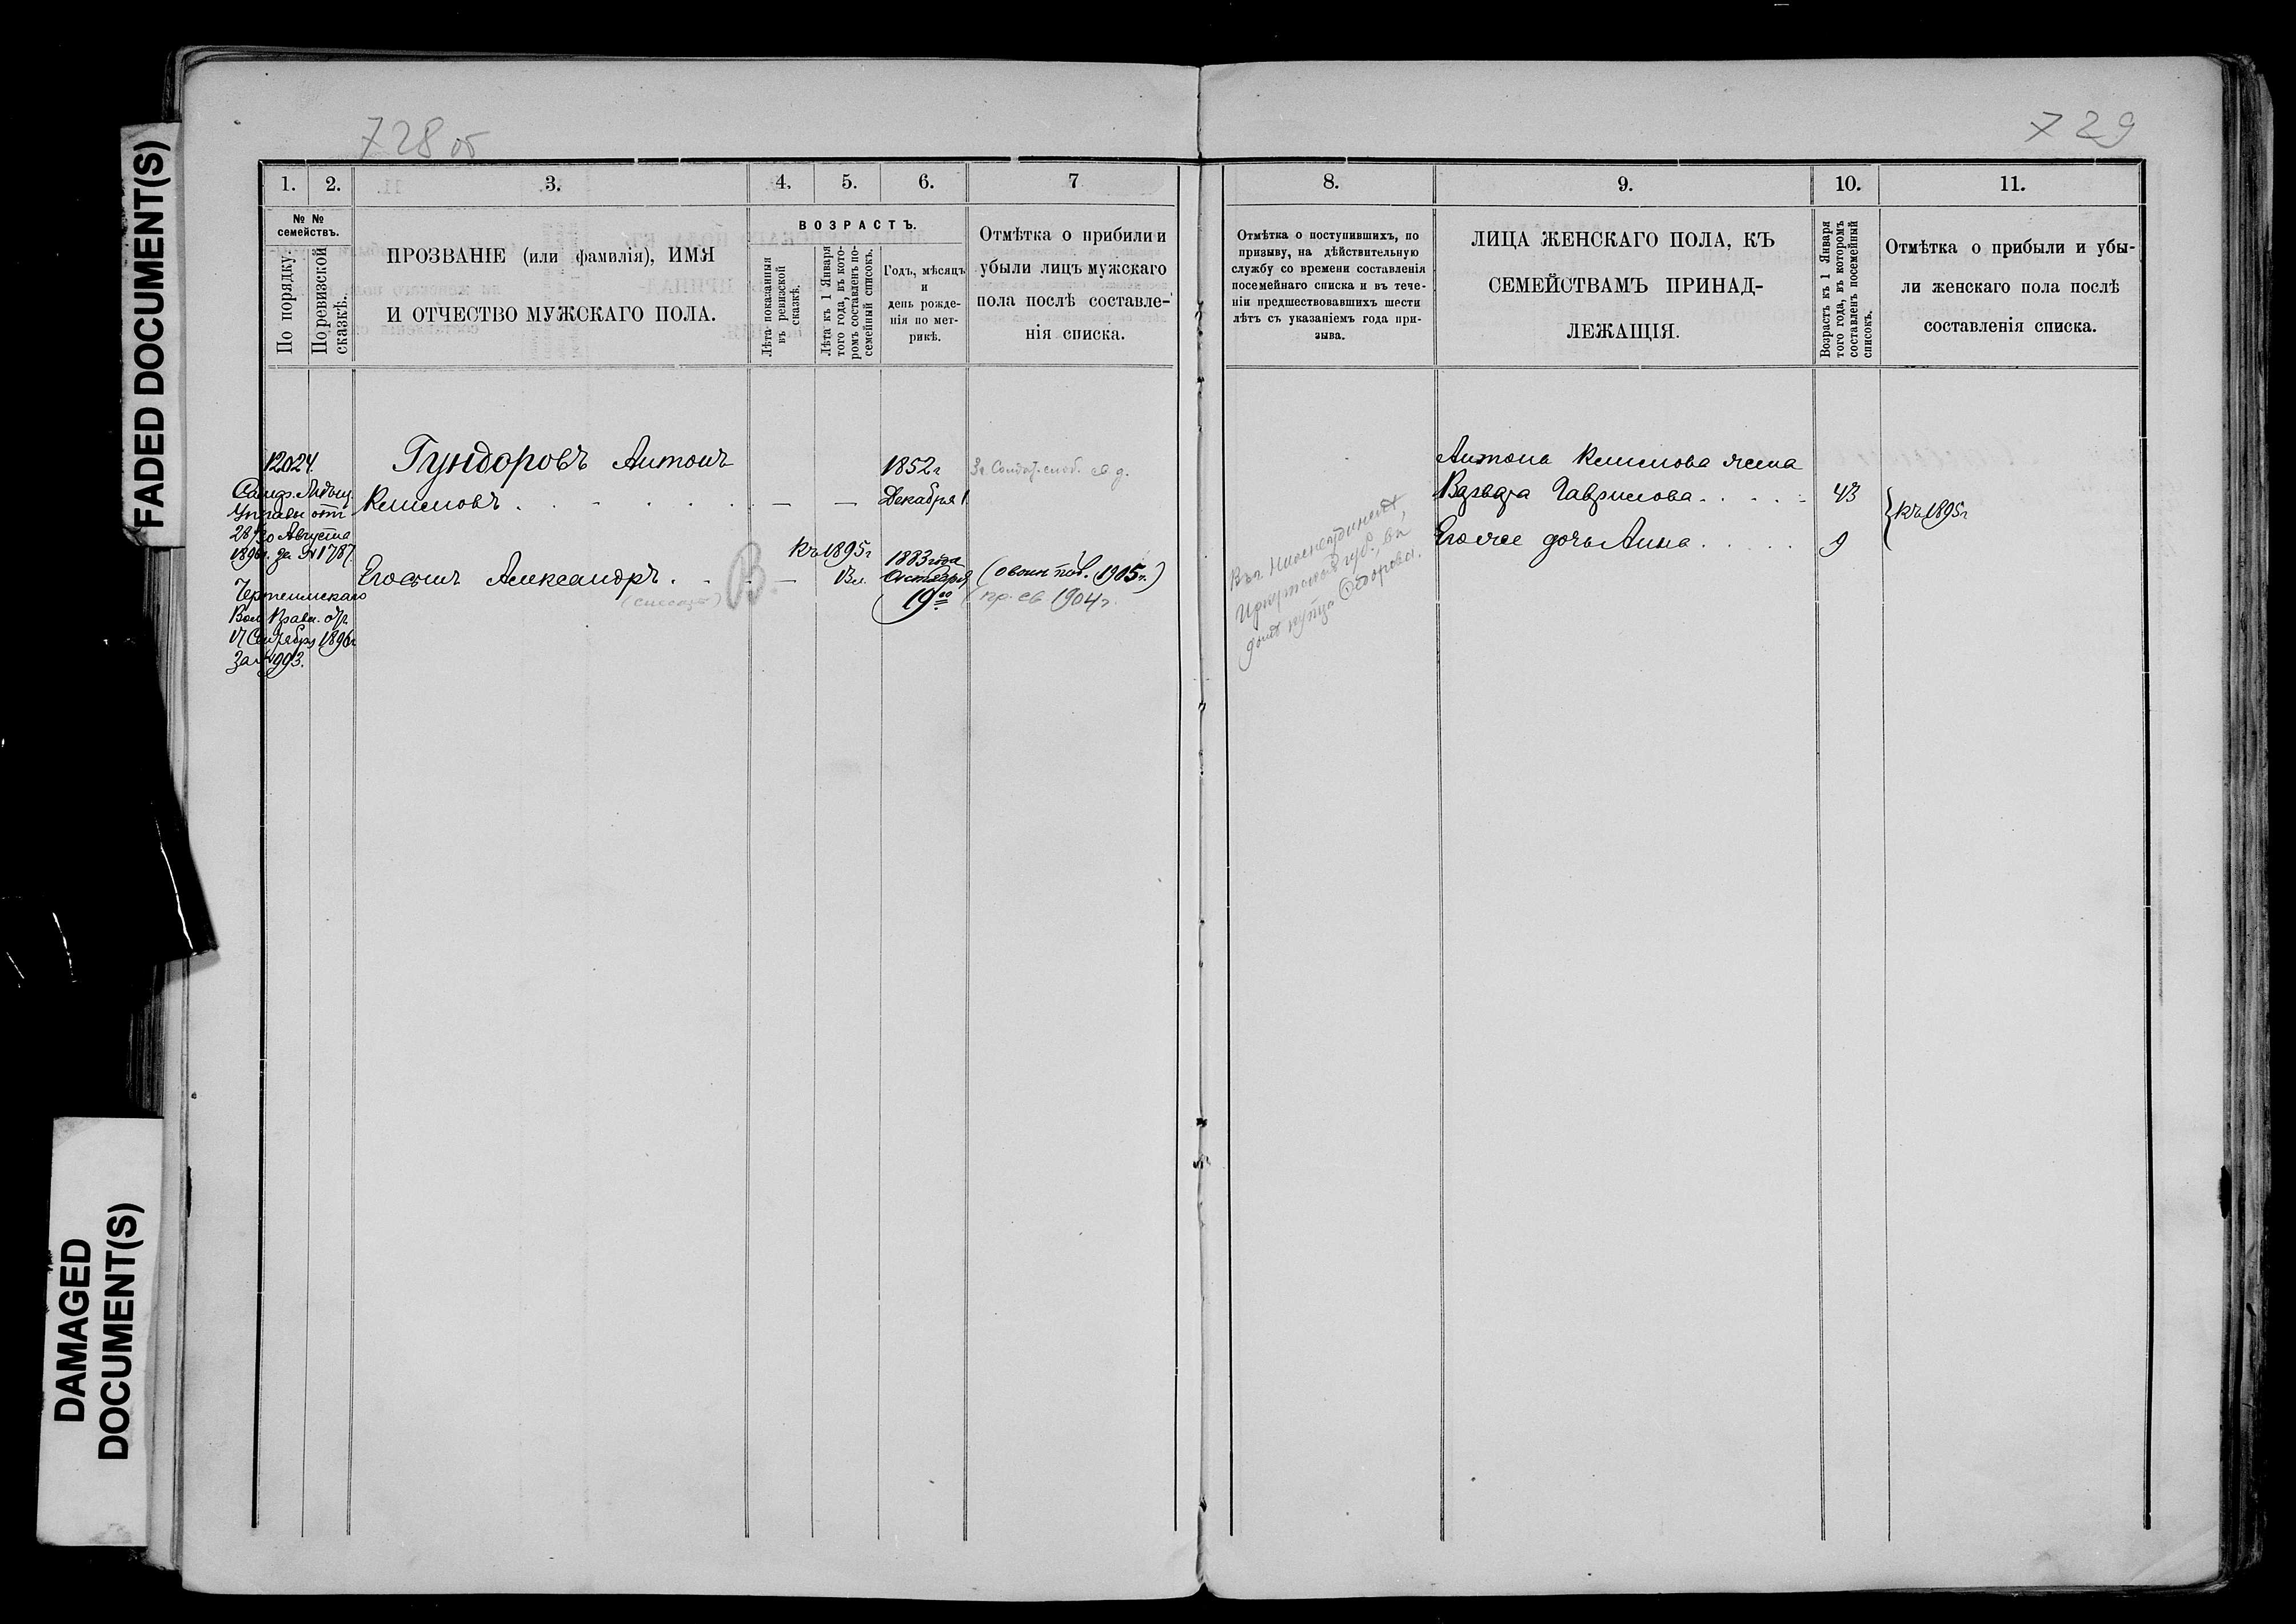 FADED DOCUMENT(S)
DAMAGED
DOCUMENT(S)
728 об
1.
2.
3.
4.
5.
6.
7
№ №
семействъ.
По порядку.
По ревизской
сказкѣ.
ПРОЗВАНІЕ (или фамилія), ИМЯ
И ОТЧЕСТВО МУЖСКАГО ПОЛА.
ВОЗРАСТЪ.
Лѣта показанныя
въ ревизской
сказкѣ.
Лѣта къ 1 Января
того года, въ кото-
ромъ составленъ по-
семейный списокъ.
Годъ, мѣсяцъ
и
день рожде-
нія по мет-
рикѣ.
Отмѣтка о прибили и
убыли лицъ мужскаго
пола послѣ составле-
нія списка.
12024.
Управы отъ
28го Августа
1896г. за № 1787.
Вол. Правл. отъ
17 Сентября 1896г
За № 993.
Гундоровъ Антонъ
Климовъ
1852г
Декабря 1
Къ 1895г
Его сынъ Александръ
В
13 л.
1883 года
Октября
19го
(о воин. пов. 1905г.)
пр. св. 1904г.
729
8.
9.
10.
11.
Отмѣтка о поступившихъ, по
призыву, на дѣйствительную
службу со времени составленія
посемейнаго списка и въ тече-
ніи предшествовавшихъ шести
лѣтъ съ указаніемъ года при-
зыва.
ЛИЦА ЖЕНСКАГО ПОЛА, КЪ
СЕМЕЙСТВАМЪ ПРИНАД-
ЛЕЖАЩІЯ.
Возрастъ къ 1 Января
того года, въ которомъ
составленъ посемейный
списокъ.
Отмѣтка о прибыли и убы-
ли женскаго пола послѣ
составленія списка.
Въ г. Нижнеудинскѣ,
Иркутской губ., въ
домѣ купца Ѳедорова.
Антона Климова жена
Варвара Гаврилова
43
Его же дочь Анна
9
къ 1895г